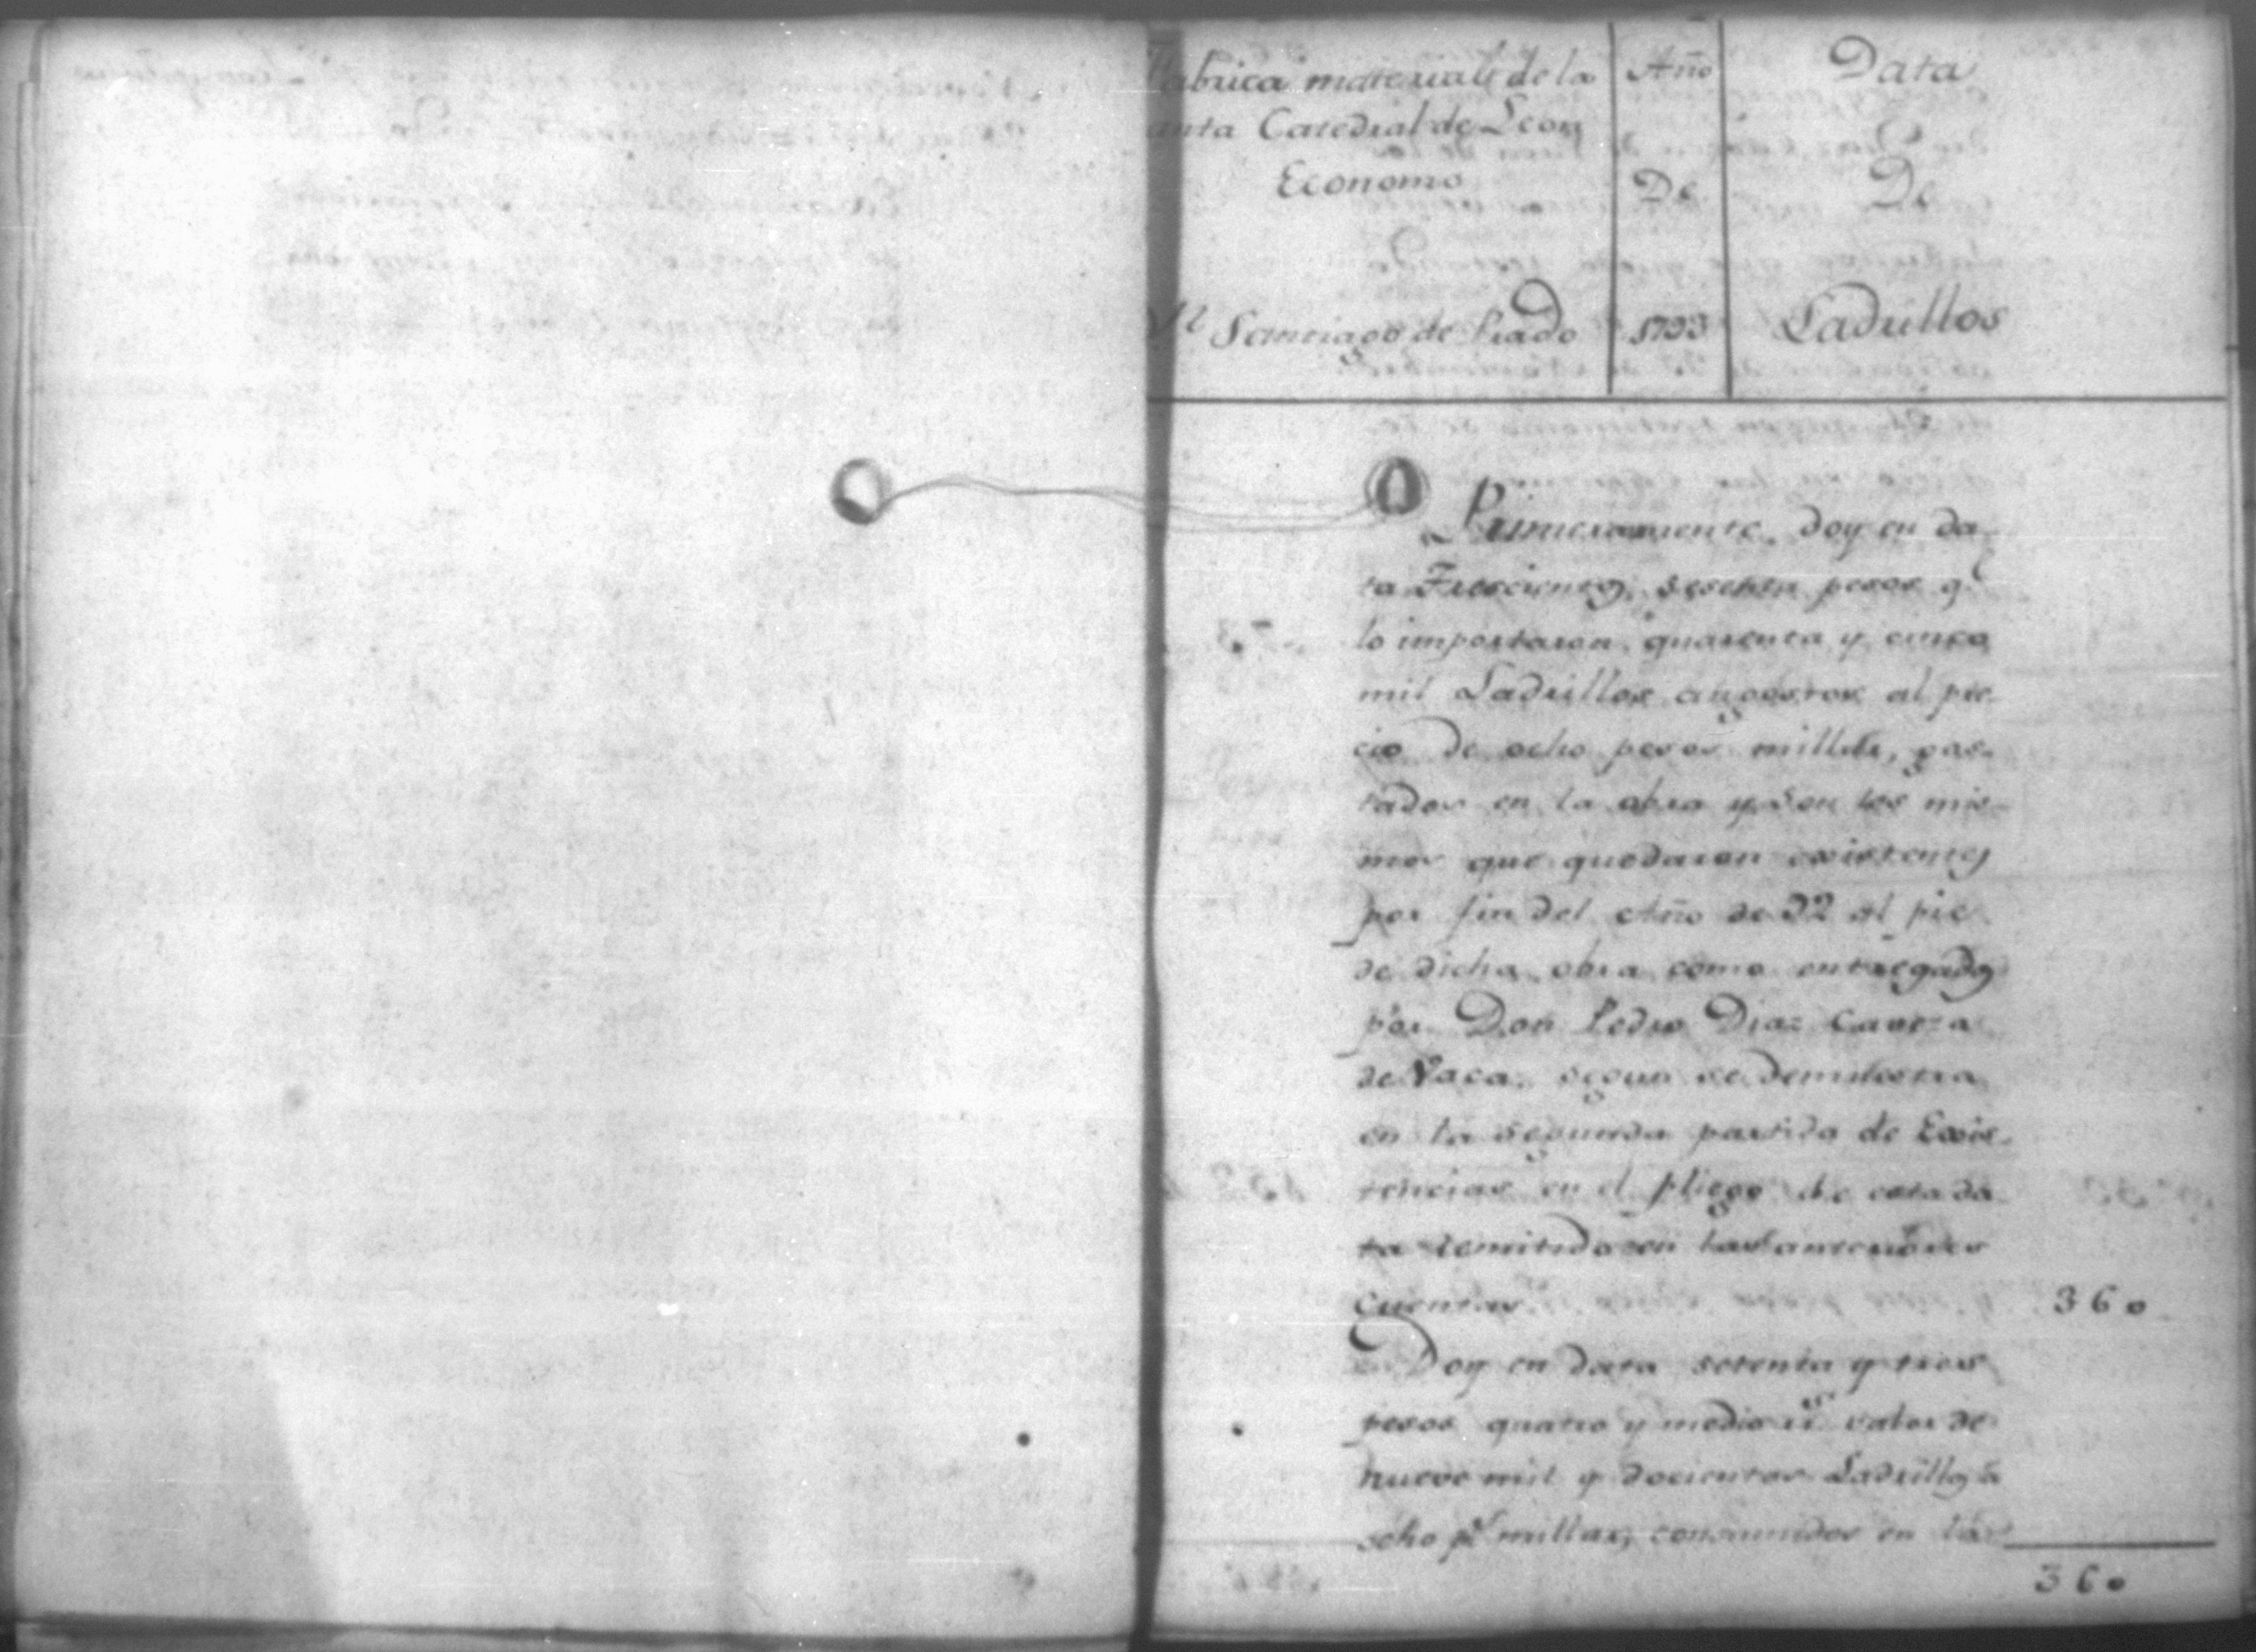 abrica material de la
anta Catedral de Leon
Economo
Santiago de Prado
Año
De
1793
Data
De
Ladrillos
Primeramente doy en da-
ta Trescientos, sesenta pesos q.e
lo importaron quarenta y cinco
mil Ladrillos angostos al pre-
cio de ocho pesos millar, gas-
tados en la obra y son los mis-
mos que quedaron existentes
por fin del Año de 92 al pie
de dicha obra como entregados
por Don Pedro Diaz Caveza
de Vaca, segun se demuestra
en la segunda partida de Exis-
tencias en el pliego de esta da-
ta remitido en las anteriores
Cuentas 360
Doy en data setenta y tres
pesos quatro y medio r.s valor de
nueve mil y docientos Ladrillos á
ocho p.s millar, consumidos en la
360